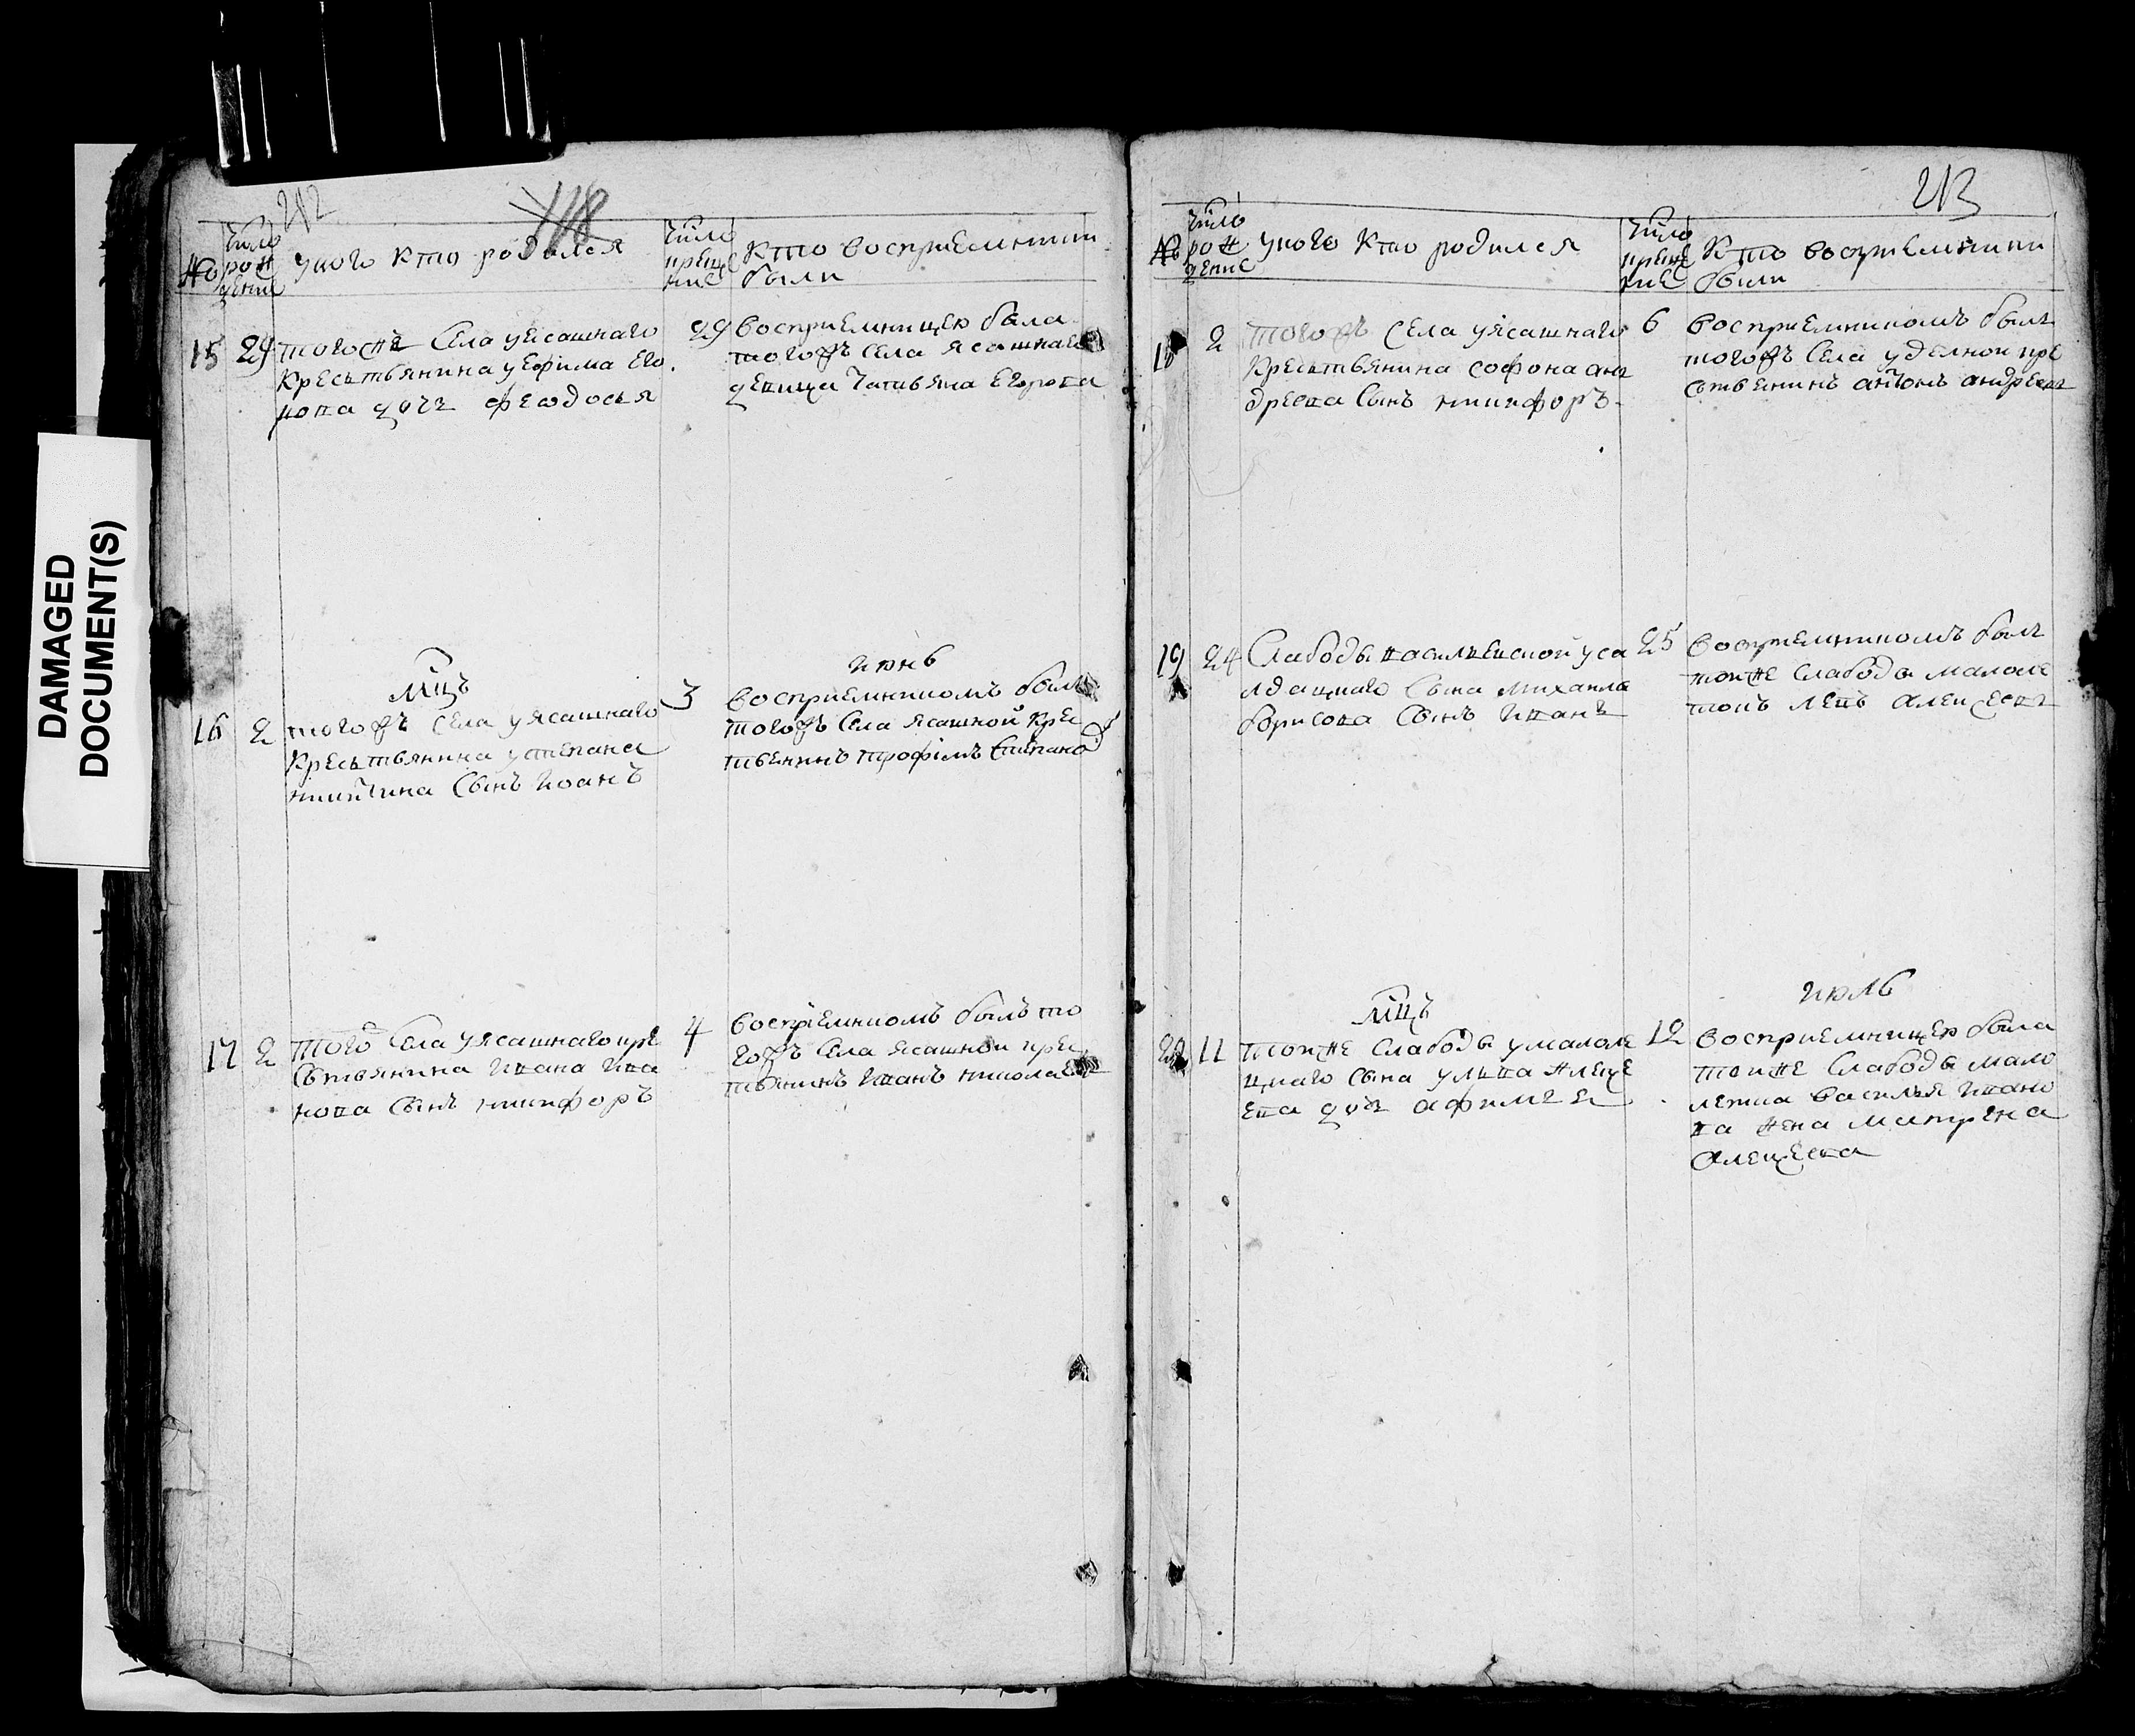 DAMAGED
DOCUMENT(S)
212
118
№
число
рож
дение
у кого кто родился
число
креще
ние
кто восприемники
были
15
29
того же села у ясашнаго
крестьянина у ефима его
рова дочь феодосья
29
восприемницею была
тогожъ села ясашнаго
девица татьяна егорова
мцъ
июнь
16
2
тогожъ села у ясашнаго
крестьянина у степана
никитина сынъ иоанъ
3
восприемникомъ былъ
тогожъ села ясашной крес
твенинъ трофимъ степано
17
2
того села у ясашнаго кре
стьвянина ивана ива
нова сынъ никифоръ
4
восприемникомъ былъ то
гожъ села ясашнои крес
твянинъ иванъ николаевъ
213
№
число
рож
дение
у кого кто родился
число
креще
ние
кто восприемники
были
18
2
тогожъ села у ясашнаго
крестьвянина софона ан
дреева сынъ никифоръ
6
восприемникомъ былъ
тогожъ села уделнои кре
стьвенинъ антонъ андреевъ
19
24
слабоды василевской у са
лдацкаго сына михаила
борисова сынъ иванъ
25
восприемникомъ былъ
тойже слабоды малоле
токъ левъ алексеевъ
мцъ
июль
20
11
тоиже слабоды у малоле
цкаго сына у льва алексе
ева дочь афимья
12
восприемницею была
тоиже слабоды мало
летка василья ивано
ва жена матрена
алексеева